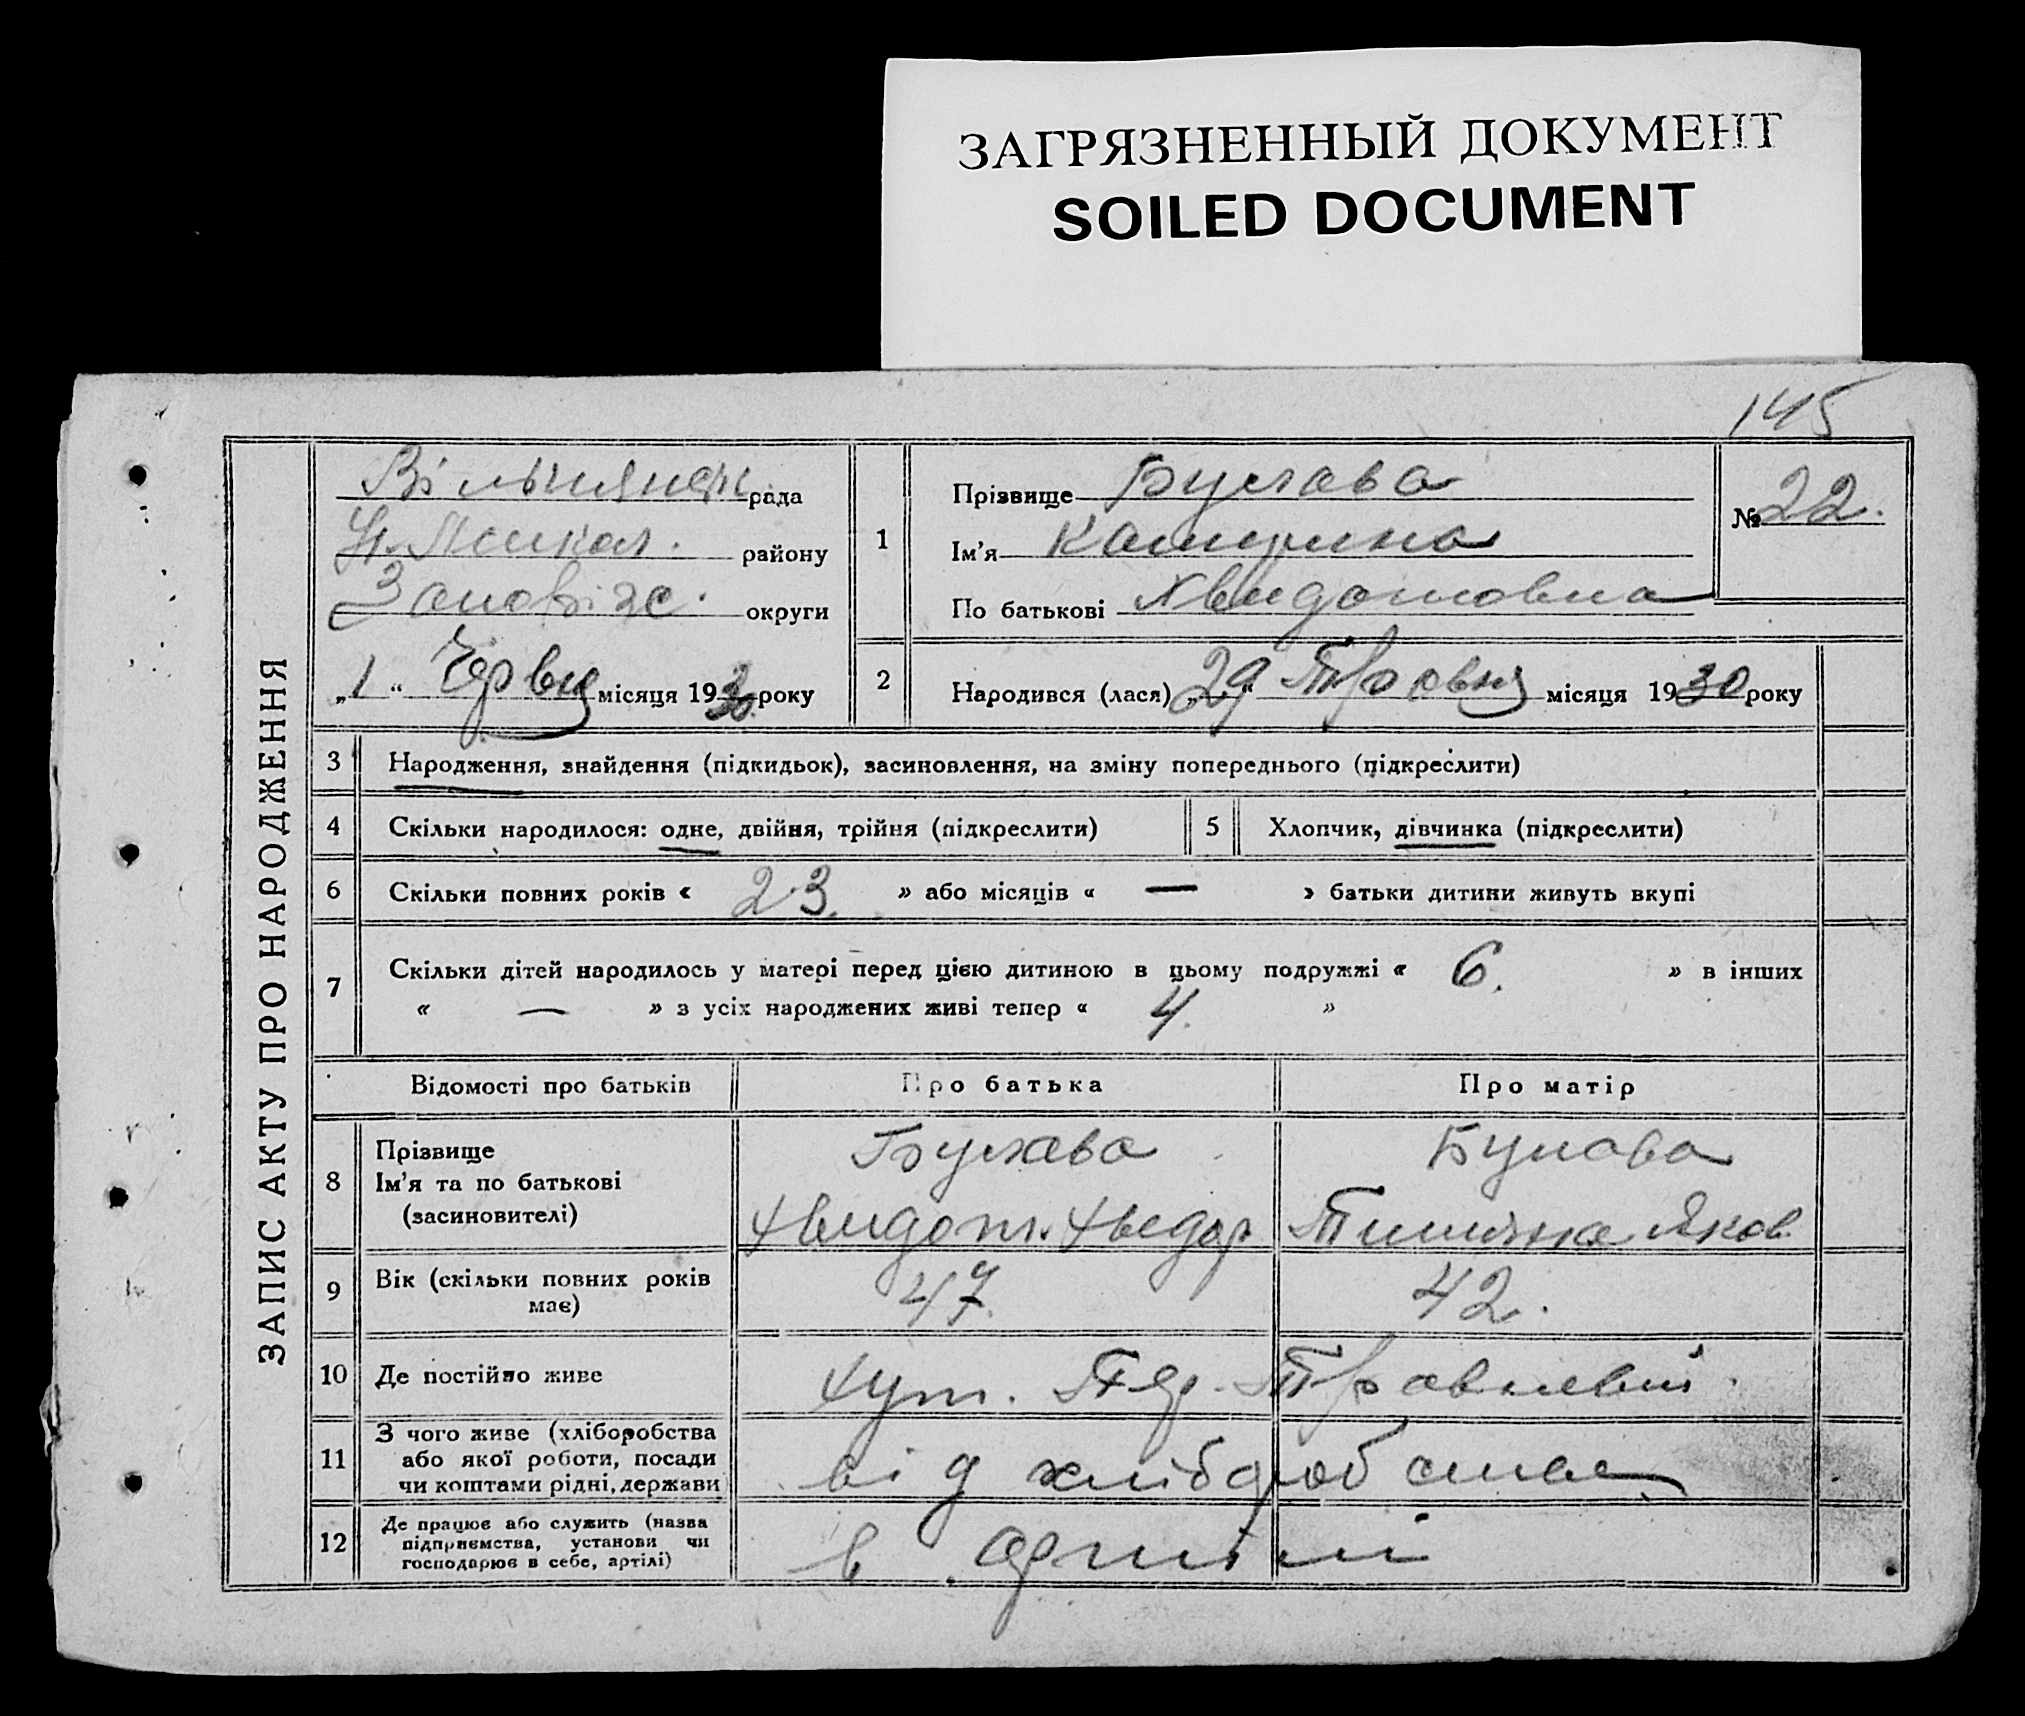 ЗАГРЯЗНЕННЫЙ ДОКУМЕНТ
SOILED DOCUMENT
145
ЗАПИС АКТУ ПРО НАРОДЖЕННЯ
рада
району
округи
„1“ Червня місяця 1930 року
1
Прізвище Булава
Ім'я Катерина
По батькові Хведотовна
№ 22.
2
Народився (лася) „29“ Травня місяця 1930 року
3 Народження, знайдення (підкидьок), засиновлення, на зміну попереднього (підкреслити)
4 Скільки народилося: одне, двійня, трійня (підкреслити)
5 Хлопчик, дівчинка (підкреслити)
6 Скільки повних років « 23. » або місяців « — » батьки дитини живуть вкупі
7 Скільки дітей народилось у матері перед цією дитиною в цьому подружжі « 6. » в інших
« — » з усіх народжених живі тепер « 4. »
Відомості про батьків Про батька Про матір
8 Прізвище
Ім'я та по батькові
(засиновителі)
Булава
Хведот. Хведор
Булава
Яков.
9 Вік (скільки повних років
має)
47. 42.
10 Де постійно живе
хут. Травневий.
11 З чого живе (хліборобства
або якої роботи, посади
чи коштами рідні, держави
від хліборобства
12 Де працює або служить (назва
підприємства, установи чи
господарює в себе, артілі)
в артілі